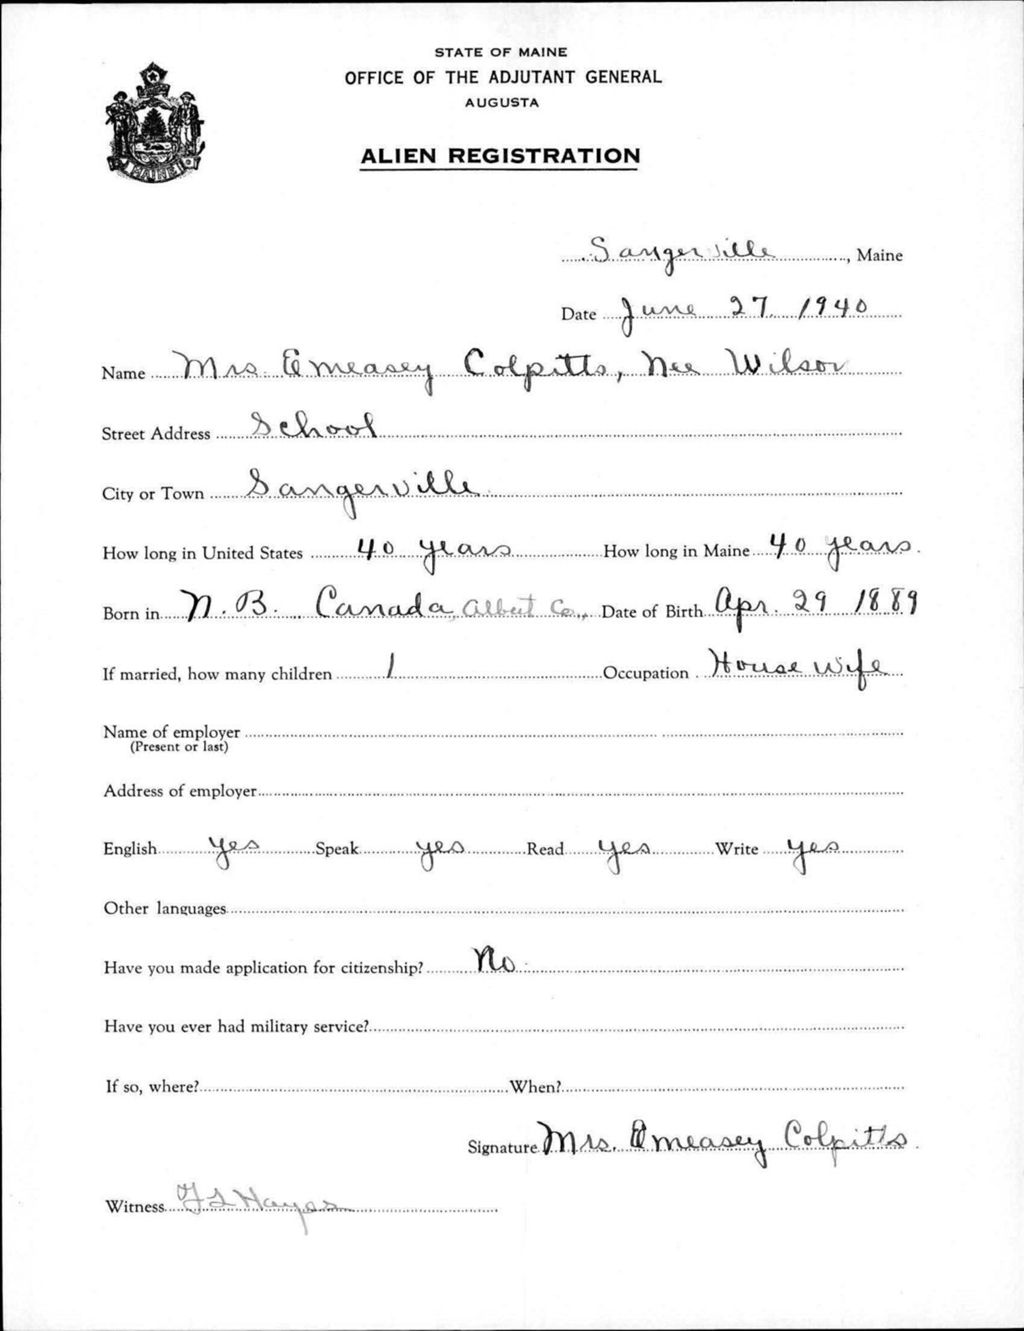 STATE OF MAINE
OFFICE OF THE ADJUTANT GENERAL
AUGUSTA
ALIEN REGISTRATION
MAINE
Sangerville, Maine
Date June 27, 1940
Name Mrs Emeasey Colpitts, Nee Wilson
Street Address School
City or Town Sangerville
How long in United States 40 years How long in Maine 40 years.
Born in N. B. Canada, Albert Co., Date of Birth Apr. 29 1889
If married, how many children 1 Occupation House wife
Name of employer
(Present or last)
Address of employer
English yes Speak yes Read yes Write yes
Other languages
Have you made application for citizenship? No
Have you ever had military service?
If so, where? When?
Signature Mrs. Emeasey Colpitts
Witness Hayes